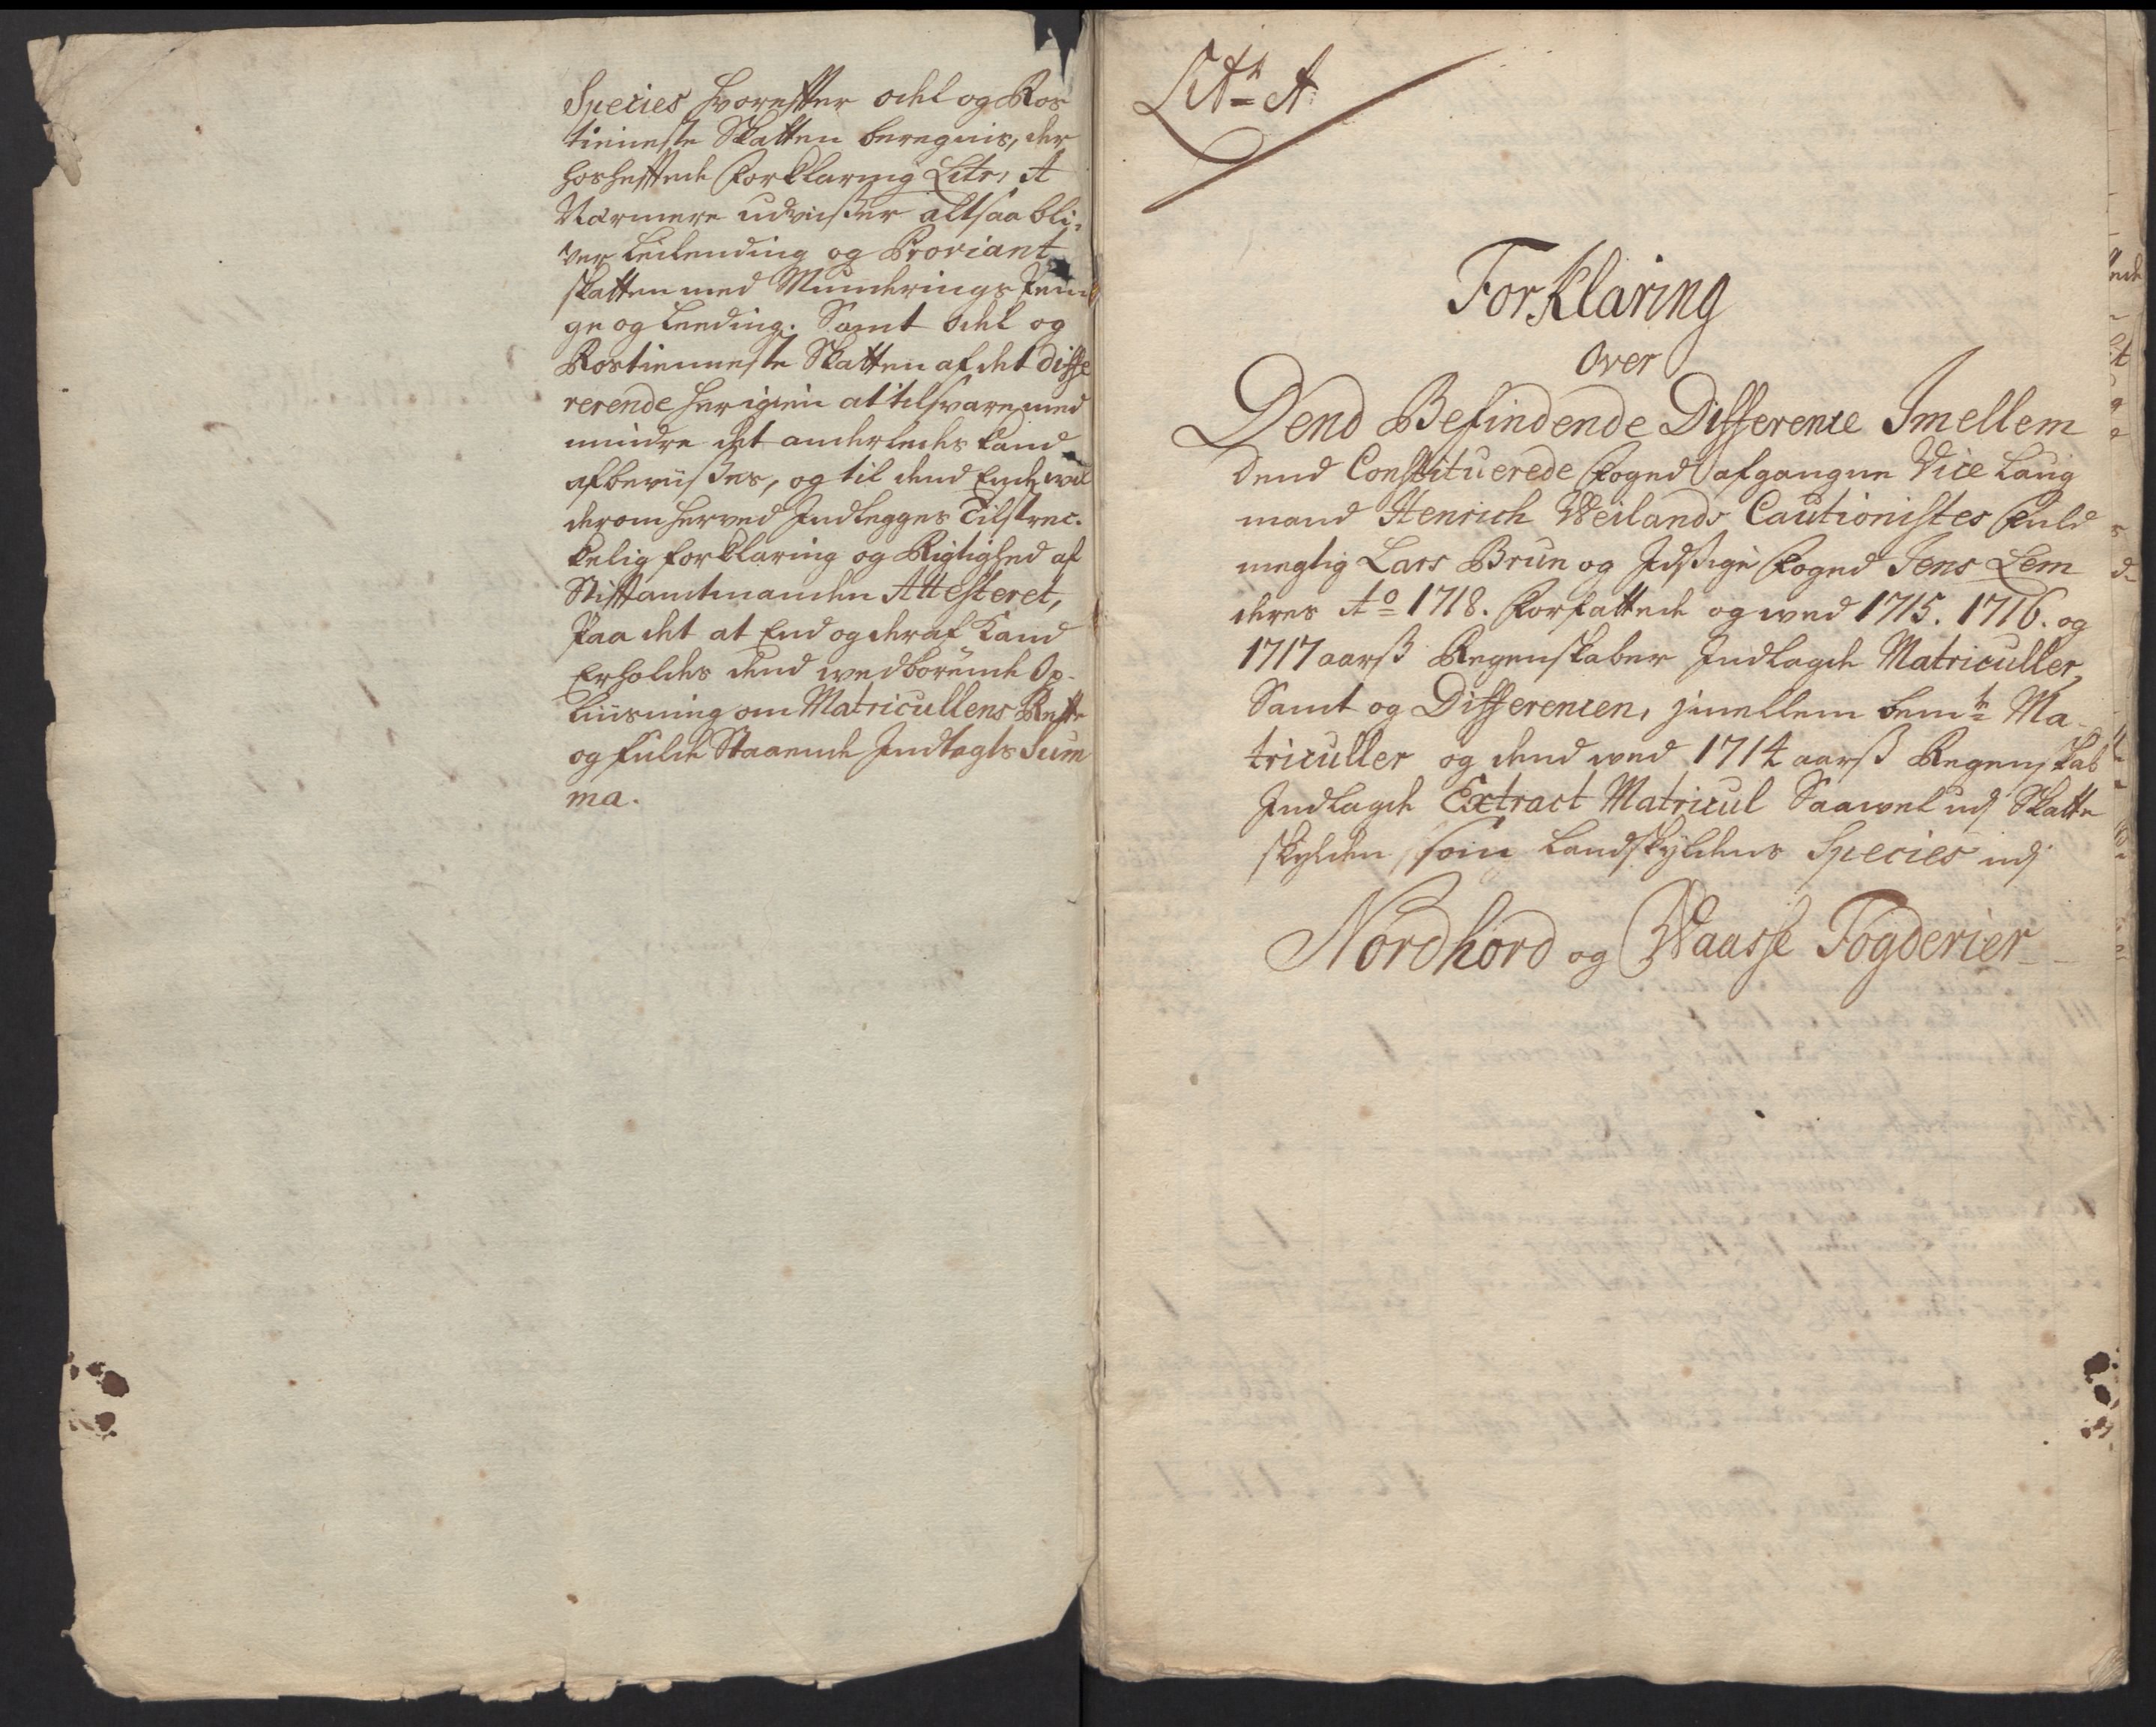 Species hvorefter odel og Ros
tieneste Skatten beregnis, der
hosheftede Forklaring Litr: A
Nærmere udviiser altsaa bli-
ver Leilending og Proviant
skatten med Munderings Penn
ge og Leeding. Samt odel og
Rostienneste Skatten af det diffe
rerende her igien at tilsvare med
mindre det anderledes kand
afbeviises, og til dend Ende vil
derom herved Indlegges Tilstrec-
kelig forklaring og Rigtighed af
Stiftamtmanden Attesteret,
Paa det at End og deraf Kand
Erholdes dend wedbørende Op-
liusning om Matricullens Rette
og fulde Staaende Indtegts Sum
ma.
Litr A
Forklaring
Over
Dend Befindende Difference Imellem
dend Constituerede Foged afgangne Vice Laug
mand Henrich Weilands Cautionistes Fuld
megtig Lars Brun og Idsige Foged Jens Lem
deres Ao 1718. Forfattede og wed 1715. 1716. og
1717 aarß Regenskaber Indlagde Matriculler,
Samt og Differencen, jmellem bemte Ma-
triculler og dend wed 1714 aarß Regenskab
Indlagde Extract Matricul Saawel udj Skatte
skylden som Landskyldens Species udj
Nordhord og Waasse Fogderier